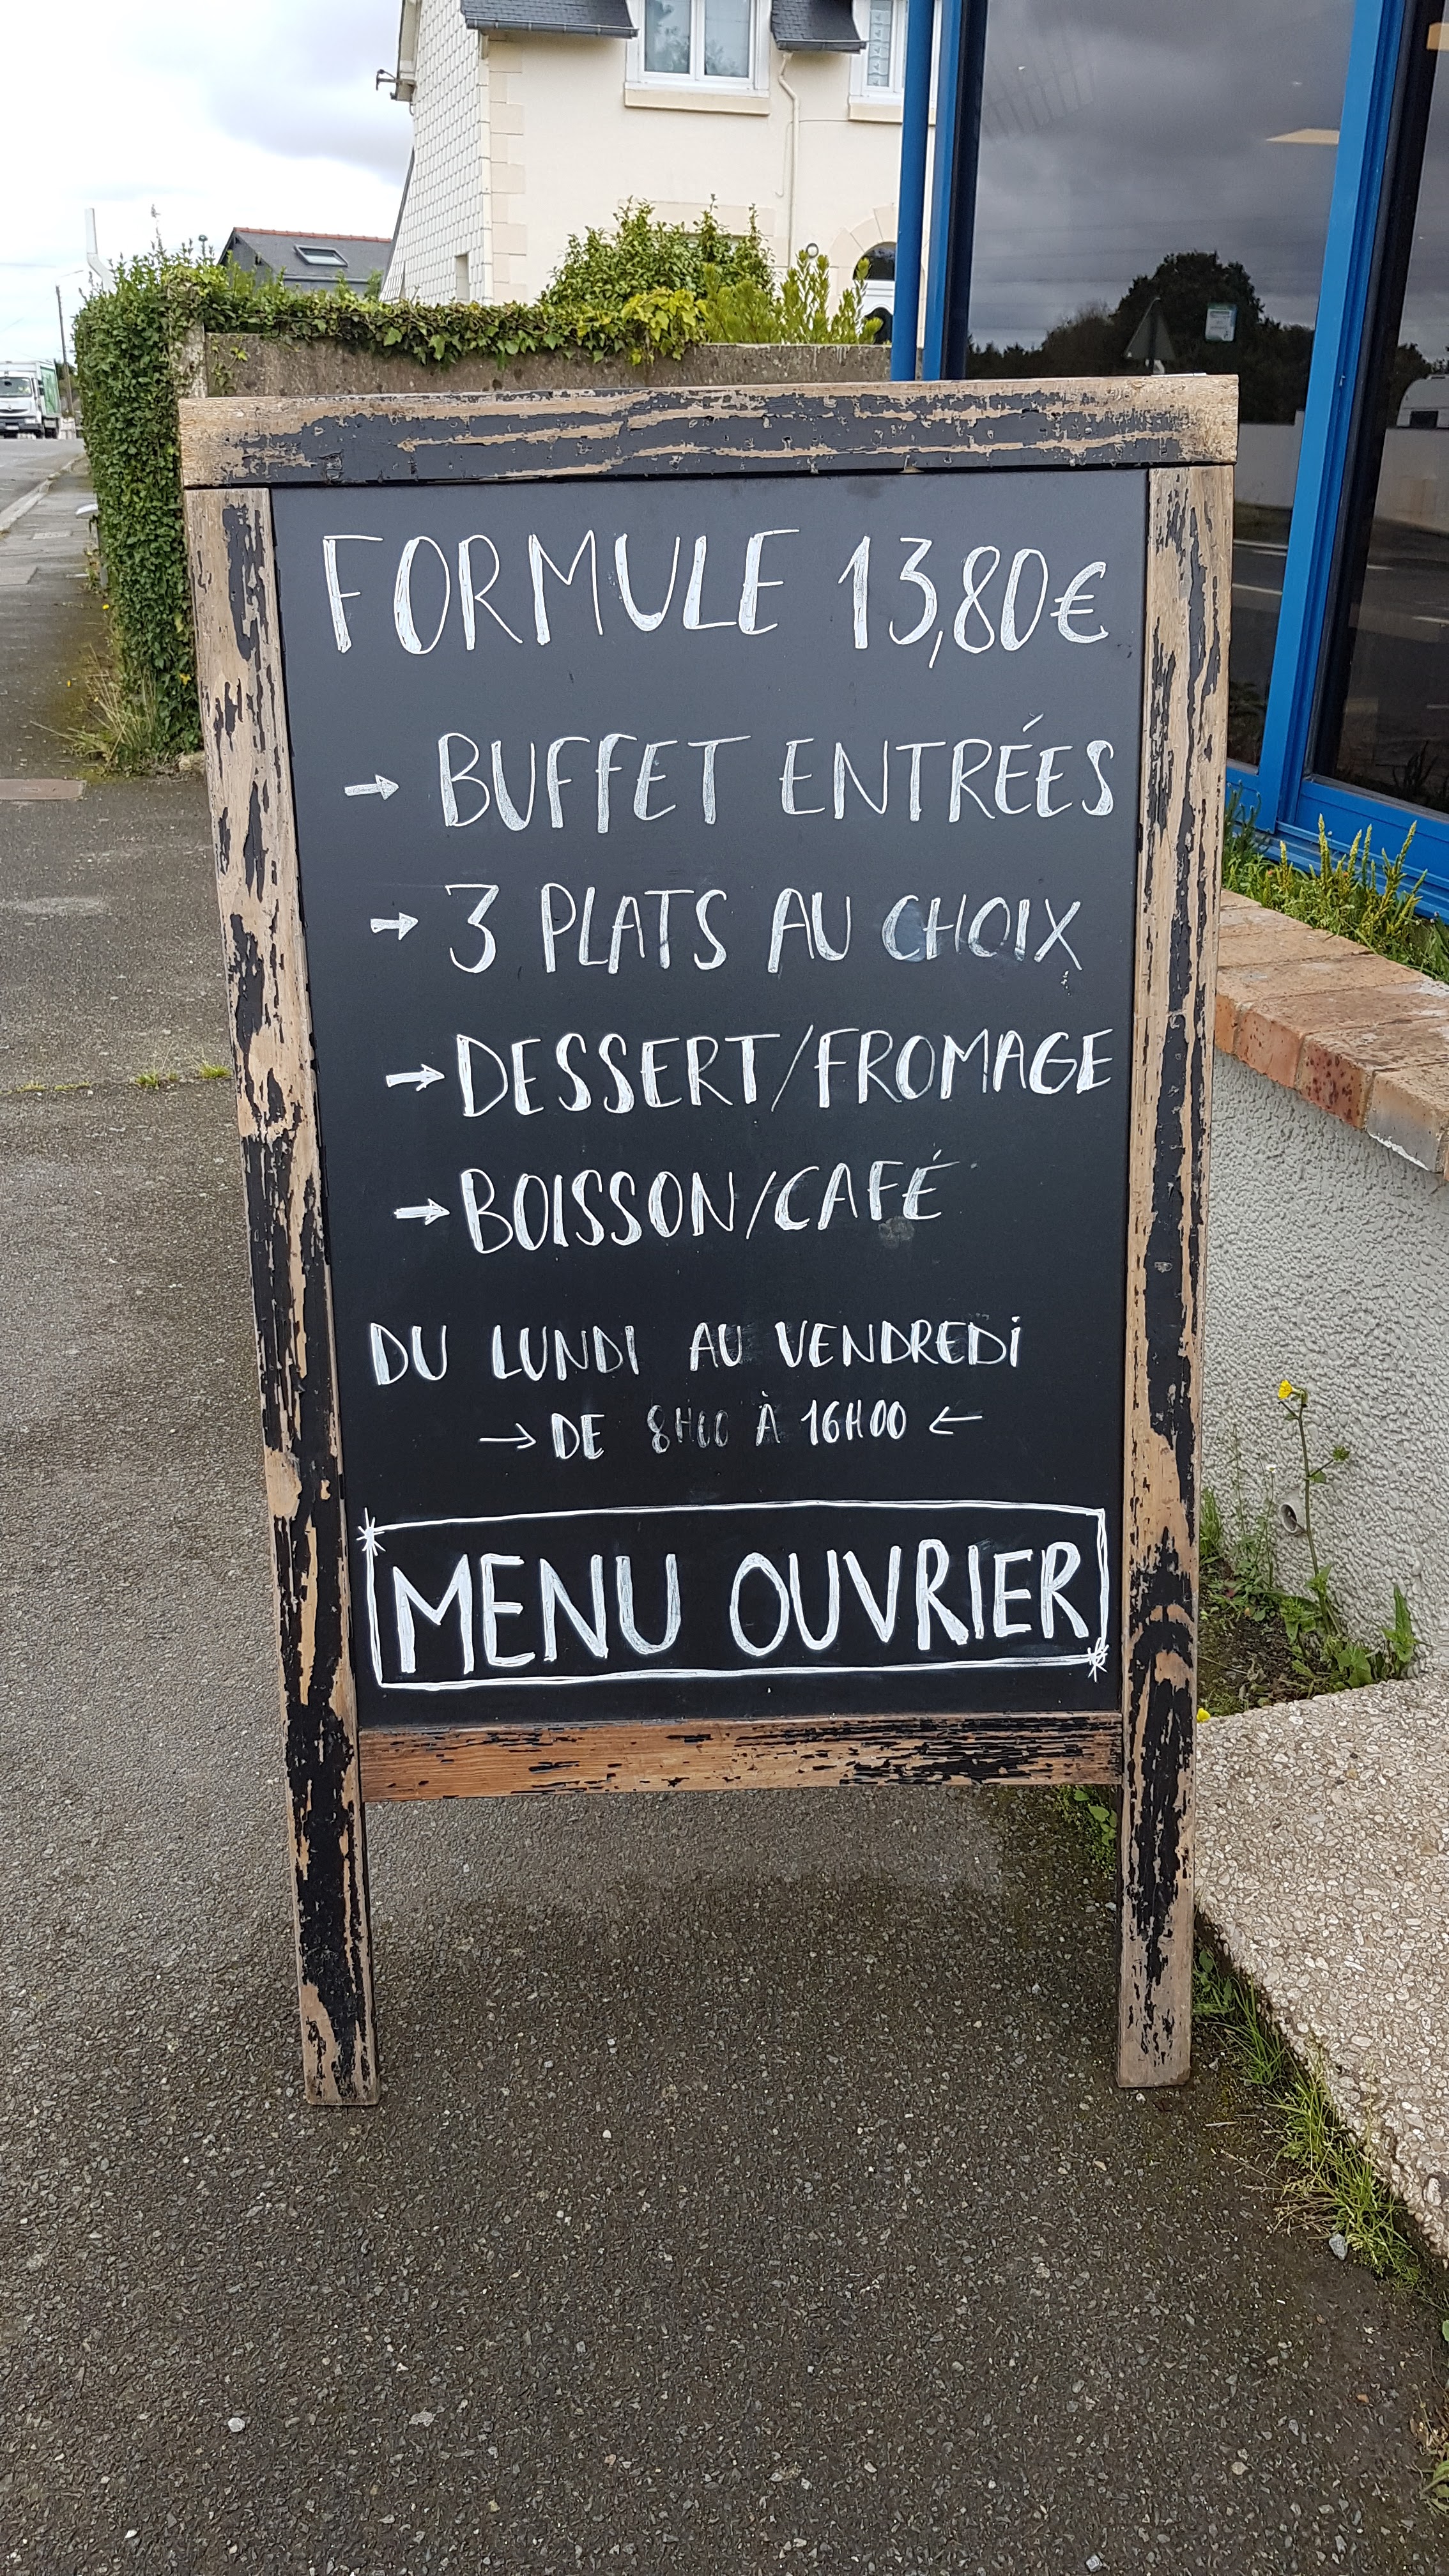 FORMULE 13,80€
→ BUFFET ENTRÉES
→ 3 PLATS AU CHOIX
→ DESSERT/FROMAGE
→ BOISSON/CAFÉ
DU LUNDI AU VENDREDI
→ DE 8H00 À 16H00 ←
MENU OUVRIER